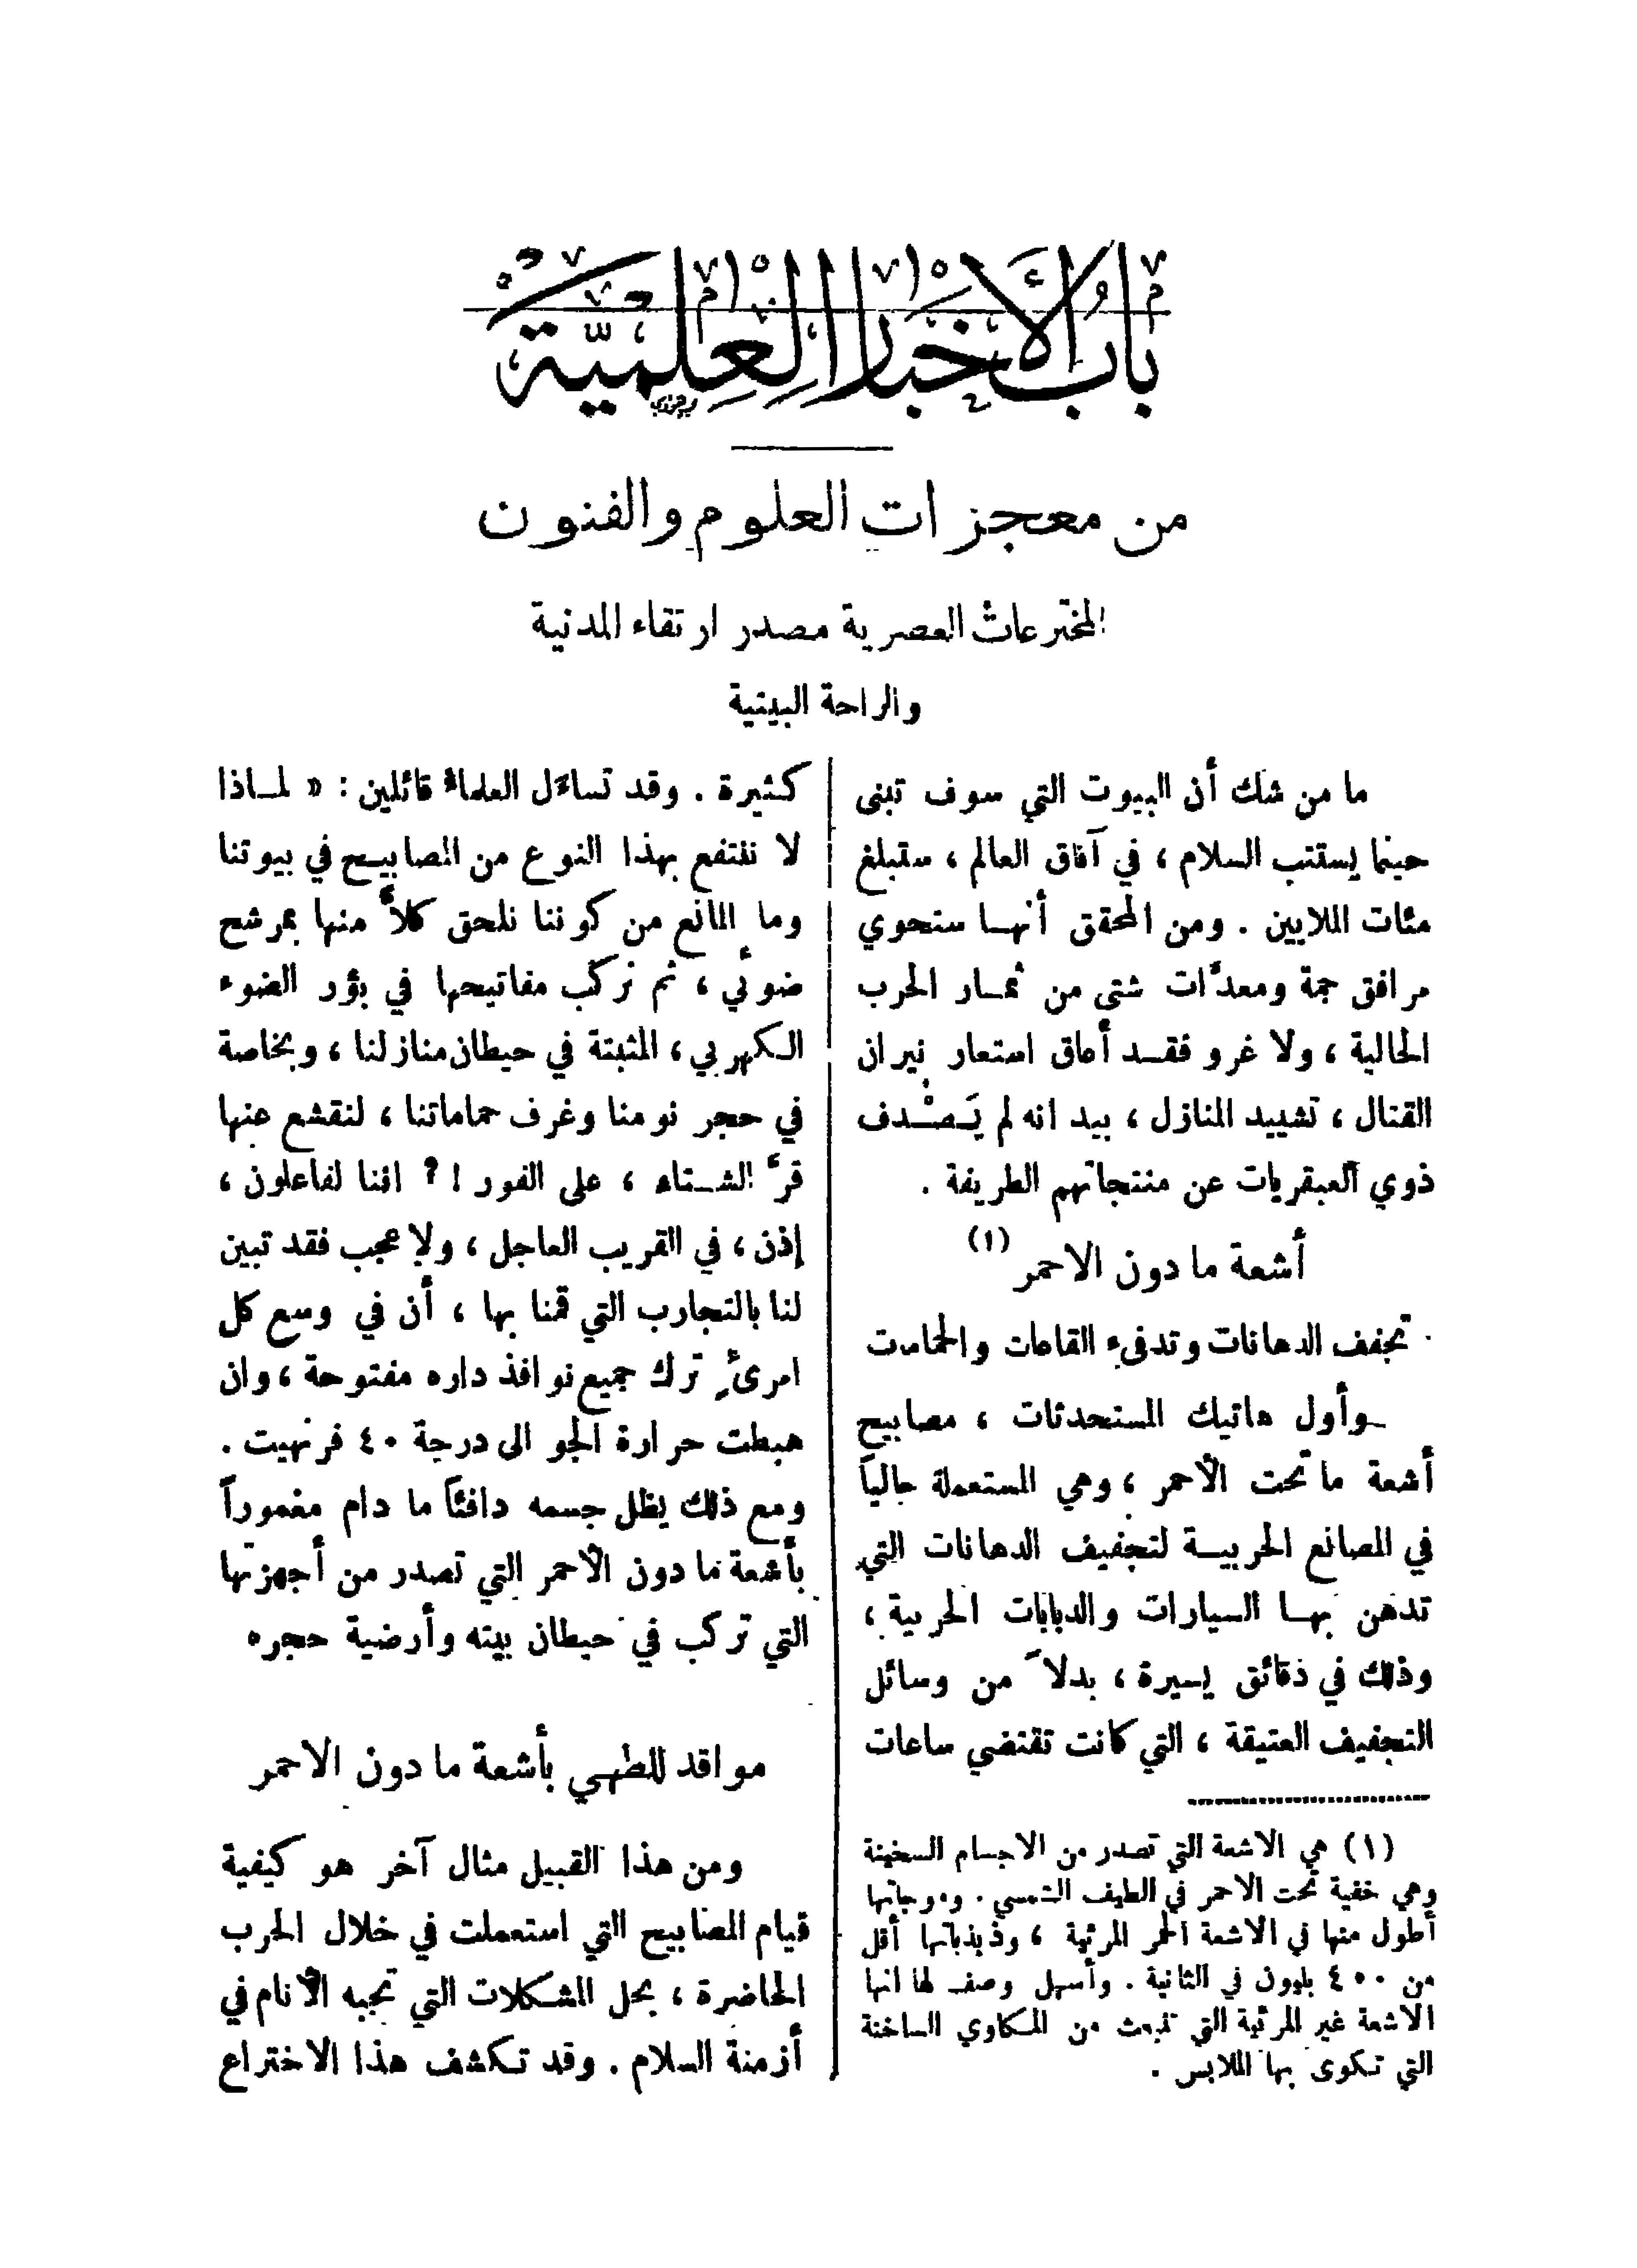 باب الأخبار العلمية
من معجزات العلوم والفنون
المخترعات العصرية مصدر ارتقاء المدنية
والراحة البيتية
ما من شك أن البيوت التي سوف تبنى
حينما يستتب السلام ، في آفاق العالم ، ستبلغ
مئات الملايين . ومن المحقق أنها ستحوي
مرافق جمة ومعدَّات شتى من ثمار الحرب
الحالية ، ولا غرو فقد أعاق استعار نيران
القتال ، تشييد المنازل ، بيد انه لم يَصْدف
ذوي العبقريات عن منتجاتهم الطريفة .
أشعة ما دون الاحمر (١)
تجفف الدهانات وتدفيء القاعات والحمامات
وأول هاتيك المستحدثات ، مصابيح
أشعة ما تحت الأحمر ، وهي المستعملة حالياً
في المصانع الحربية لتجفيف الدهانات التي
تدهن بها السيارات والدبابات الحربية ،
وذلك في دقائق يسيرة ، بدلاً من وسائل
التجفيف العتيقة ، التي كانت تقتضي ساعات
(١) هي الاشعة التي تصدر من الاجسام السخينة
وهي خفية تحت الاحمر في الطيف الشمسي . وموجاتها
أطول منها في الاشعة الحمر المرئية ، وذبذباتها أقل
من ٤٠٠ بليون في الثانية . وأسهل وصف لها انها
الاشعة غير المرئية التي تنبعث من المكاوي الساخنة
التي تكوى بها الملابس .
كثيرة . وقد تساءَل العلماءُ قائلين : « لماذا
لا ننتفع بهذا النوع من المصابيح في بيوتنا
وما المانع من كوننا نلحق كلاًّ منها بمرشح
ضوئي ، ثم نركِّب مفاتيحها في بؤر الضوء
الكهربي ، المثبتة في حيطان منازلنا ، وبخاصة
في حجر نومنا وغرف حماماتنا ، لنقشع عنها
قرَّ الشتاء ، على الفور ! ؟ اننا لفاعلون ،
إذن ، في القريب العاجل ، ولا عجب فقد تبين
لنا بالتجارب التي قمنا بها ، أن في وسع كل
امرئٍ ترك جميع نوافذ داره مفتوحة ، وان
هبطت حرارة الجو الى درجة ٤٠ فرنهيت .
ومع ذلك يظل جسمه دافئاً ما دام مغموراً
بأشعة ما دون الأحمر التي تصدر من أجهزتها
التي تركب في حيطان بيته وأرضية حجره
مواقد للطهي بأشعة ما دون الاحمر
ومن هذا القبيل مثال آخر هو كيفية
قيام المصابيح التي استعملت في خلال الحرب
الحاضرة ، بحل المشكلات التي تجبه الأنام في
أزمنة السلام . وقد تكشف هذا الاختراع